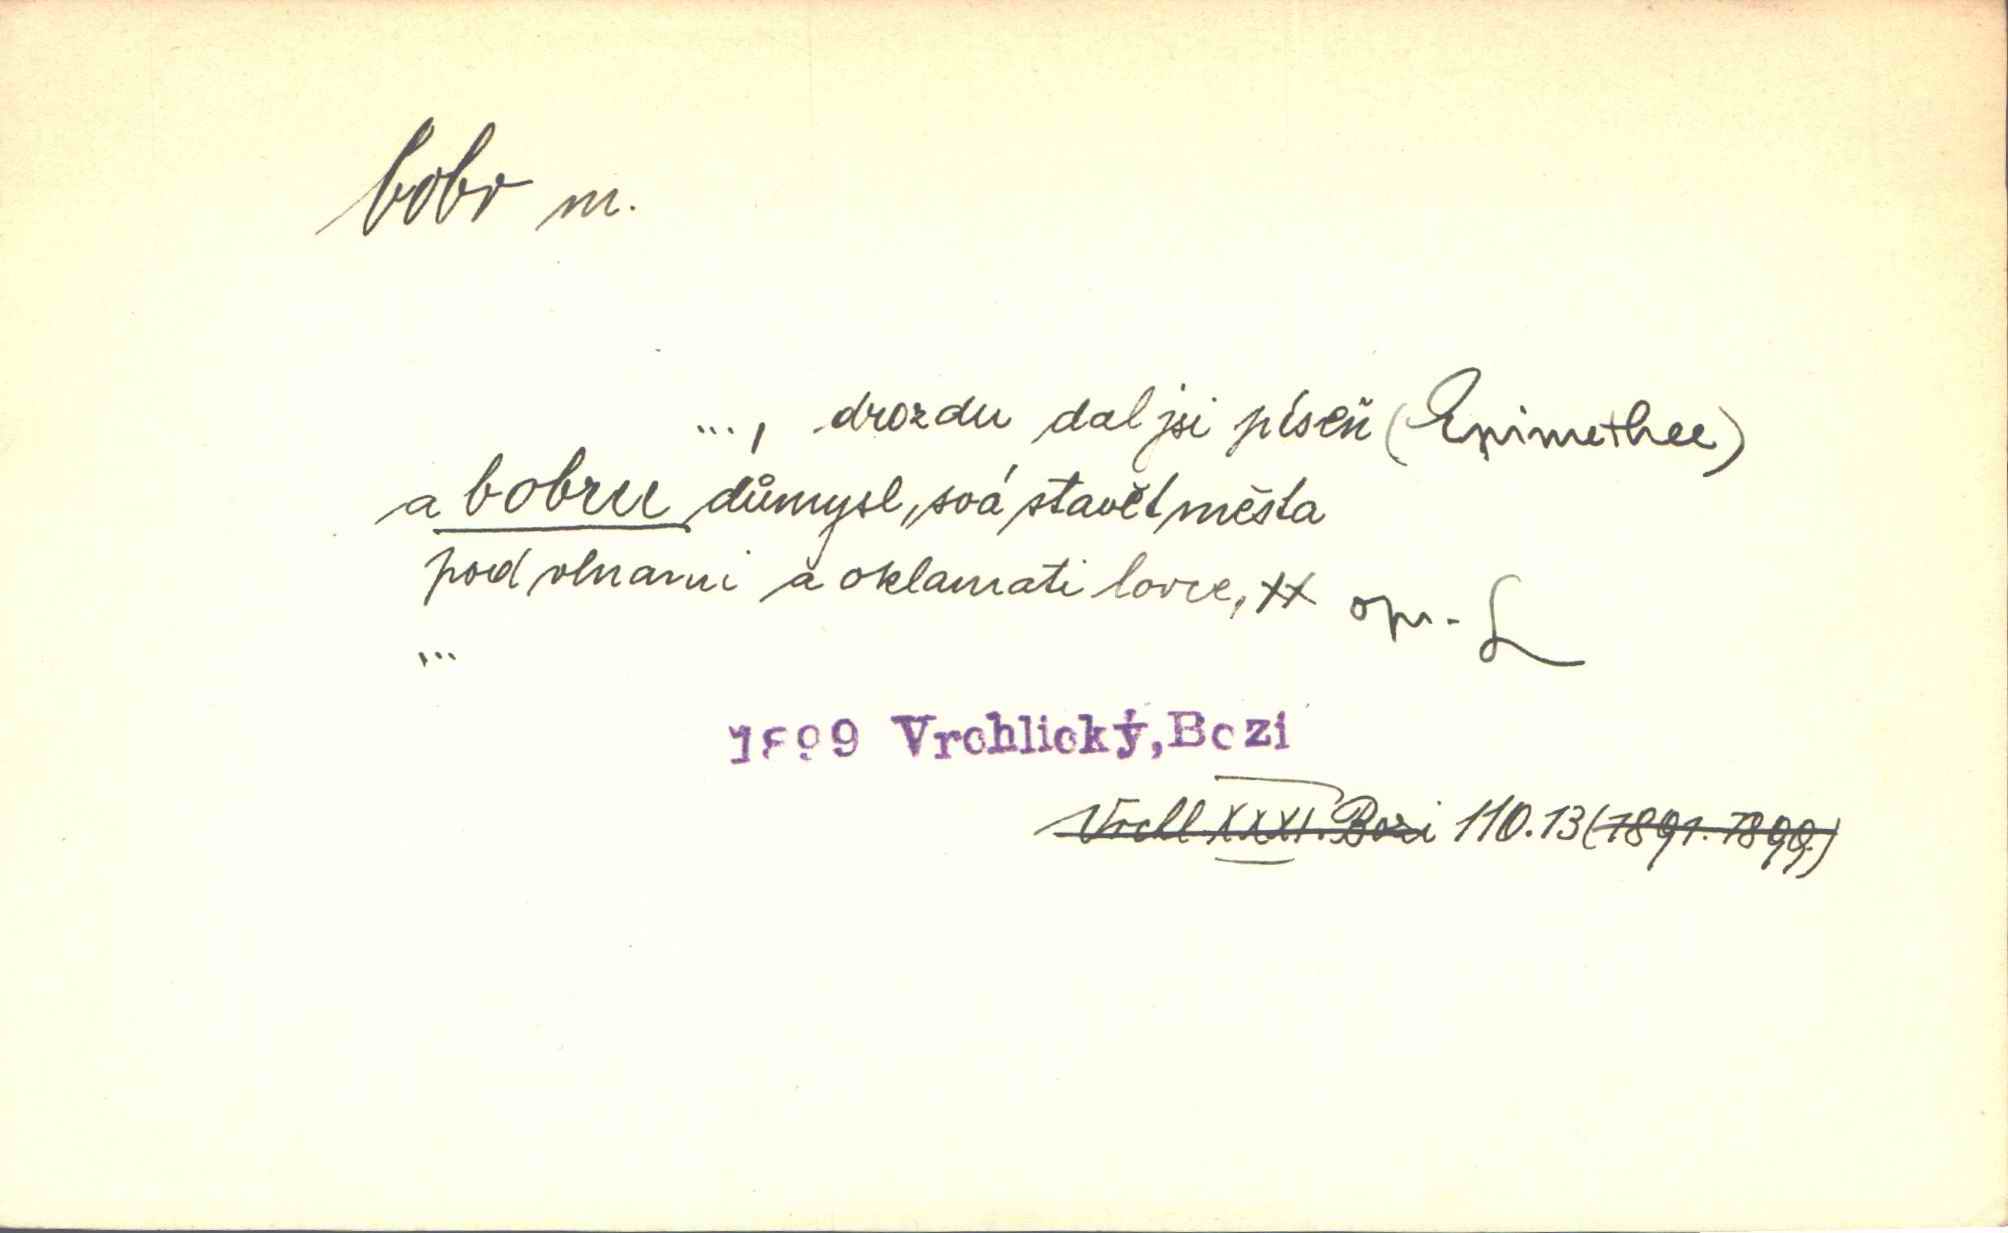 bobr m.
..., drozdu dal jsi píseň (Epimethee)
a bobru důmysl, svá stavět města
pod vlnami a oklamati lovce, XX opr. L
...
1899 Vrchlický, Bozi
Vrchl XXXI. Bozi 110.13 (1891. 1899.)